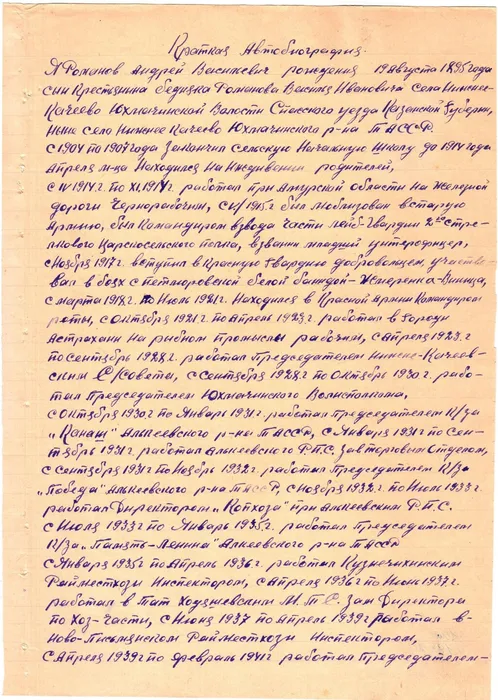 Краткая Автобиография.
Я Романов Андрей Васильевич рождения 19 Августа 1895 года
сын Крестьянина бедняка Романова Василия Ивановича села Нижнее-
Качеево Юхмачинской Волости Спасского уезда Казанской Губернии,
Ныне село Нижнее Качеево Юхмачинского р-на ТАССР.
С 1904 по 1907 года Закончил сельскую Начальную Школу до 1914 года
Апреля м-ца Находился На Иждивении родителей,
с IV 1914 г. по XI 1914 г. работал при Амурской области На железной
дороги Чернорабочим, с 1915 г. был мобилизован встарую
Армию, был Командиром взвода части лейб-Гвардии 2го Стре-
лкового Царскосельского полка, взвании младший унтерофицер,
с Ноября 1917 г. вступил в Красную Гвардию добровольцем, участво-
вал в боях с петлюровской белой бандой - Жмеренка-Винница,
с марта 1918 г. по Июль 1921 г. Находился в Красной Армии Командиром
роты, с Октября 1921 г. по Апрель 1923 г. работал в Городи
Астрахани На рыбном Промыслы рабочим, с Апреля 1923 г.
по Сентябрь 1928 г. работал Председателем Нижне-Качеев-
ским С/Совета, с Сентября 1928 г. по Октябрь 1930 г. рабо-
тал Председателем Юхмачинского Волисполкома,
с Октября 1930 г. по Январь 1931 г. работал председателем К/за
"Канаш" Алькеевского р-на ТАССР, с Января 1931 г. по Сен-
тябрь 1931 г. работал Алькеевского Р.П.С. Зав торговым Отделом,
с Сентября 1931 г. по Ноябрь 1932 г. работал Председателем К/за
"Победа" Алькеевского р-на ТАССР, с Ноября 1932 г. по Июль 1933 г.
работал Директором "Копхоза" при Алькеевским Р.П.С.
с Июля 1933 г. по Январь 1935 г. работал Председателем
К/за "Память-Ленина" Алкеевского р-на ТАССР
с Января 1935 г. по Апрель 1936 г. работал Кузнечихинским
Райместхозы Инспектором, с Апреля 1936 г. по Июнь 1937 г.
работал в Тат М.Т.С. Зам Директора
по Хоз-части, с Июня 1937 по Апрель 1939 г. работал в-
Ново-Письмянском Райместхозы Инспектором,
с Апреля 1939 г. по Февраль 1941 г. работал Председателем-